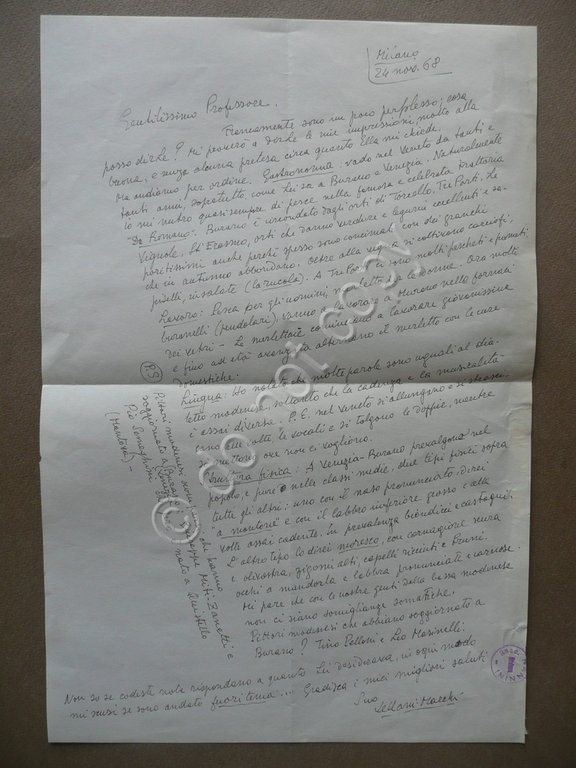 Milano
24 nov. 68
Gentilissimo Professore,
Francamente sono un poco perplesso; cosa
posso dirLe? Mi proverò a dirLe le mie impressioni, molto alla
buona, e senza alcuna pretesa circa quanto Ella mi chiede.
Ora andiamo per ordine. Gastronomia: vado nel Veneto da tanti e
tanti anni, sopratutto, come Lei sa a Burano e Venezia. Naturalmente
io mi nutro quasi sempre di pesce nella famosa e celebrata trattoria
"Da Romano". Burano è circondato dagli orti di Torcello, Tre Porti, Le
Vignole, St' Erasmo, orti che danno verdure e legumi eccellenti e sa-
poritissimi anche perchè spesso sono concimati con dei granchi
che in autunno abbondano. Oltre alla si coltivano carciofi,
piselli, insalate (la rucola). A Tre Porti ci sono molti porcheti e
Lavoro: Pesca per gli uomini, merletto per le donne. Ora molti
buranelli (pendolari), vanno a lavorare a Murano nelle fornaci
dei vetri - Le merlettaie cominciano a lavorare giovanissime
e fino ad età avanzata alternano il merletto con le cure
domestiche.
Lingua: Ho notato che molte parole sono uguali al dia-
letto modenese, soltanto che la cadenza e la musicalità
è assai diversa. P.E. nel Veneto si allungano e si strasci-
cano molte volte le vocali e si tolgono le doppie, mentre
si mettono ove non ci vogliono.
Struttura fisica: A Venezia-Burano prevalgono nel
popolo, e pure nelle classi medie, due tipi fisici sopra
tutti gli altri: uno con il naso pronunciato direi
a montone e con il labbro inferiore grosso e alle
volte assai cadente. In prevalenza biondicci e castagni.
L'altro tipo lo direi moresco, con carnagione scura
e olivastra, zigomi alti, capelli ricciuti e bruni.
occhi a mandorla e labbra pronunciate e carnose.
Mi pare che con le nostre genti della bassa modenese
non ci siano somiglianze somatiche.
Pittori modenesi che abbiano soggiornato a
Burano? Tino Pelloni e Leo Masinelli.
Non so se codeste note rispondano a quanto Lei desiderava, in ogni modo
mi scusi se sono andato fuori tema... Gradisca i miei migliori saluti
Suo
PS
Pittori modenesi
soggiornato a Burano
Pio Semeghini
(Mantova) -
che hanno
Giuseppe Miti-Zanetti e
nato a Quistello
© do not copy